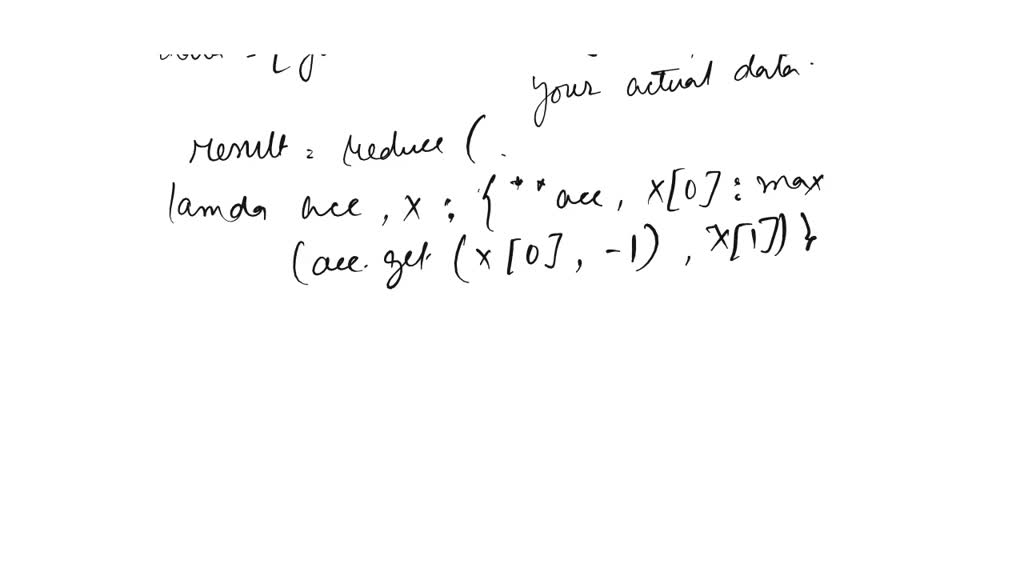 your actual data.
result = reduce (
lamda acc , x : { ** acc , x[0] : max
(acc. get (x [0] , -1) , x[1]) }